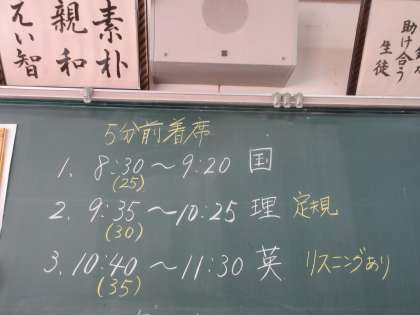 素朴
親和
えい智
助け合う
生徒
5分前着席
1. 8:30〜9:20 国
(25)
2. 9:35〜10:25 理 定規
(30)
3. 10:40〜11:30 英 リスニングあり
(35)